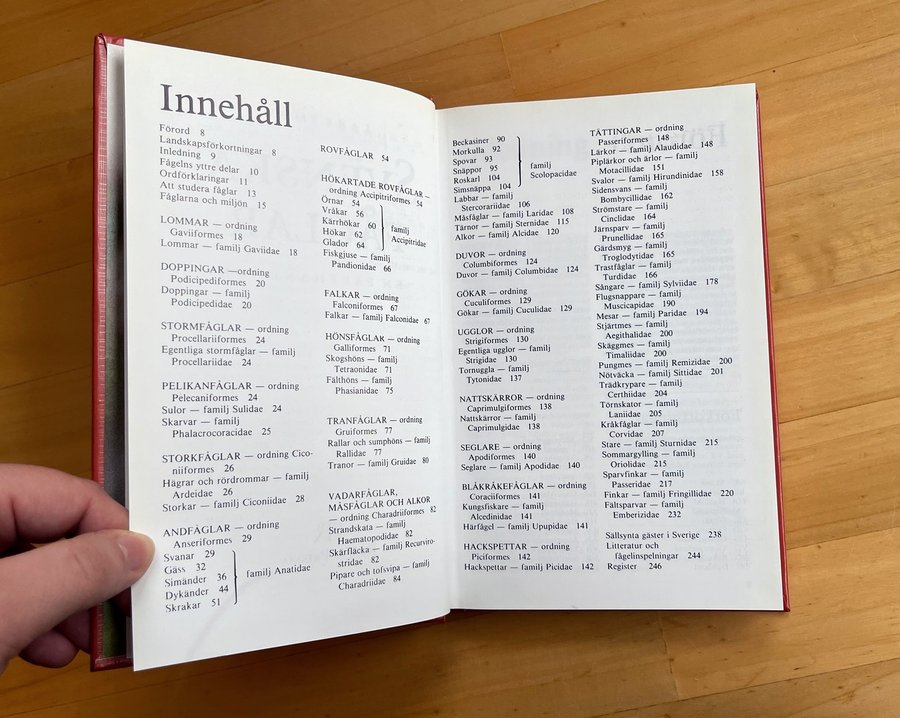 Innehåll
Förord 8
Landskapsförkortningar 8
Inledning 9
Fågelns yttre delar 10
Ordförklaringar 11
Att studera fåglar 13
Fåglarna och miljön 15
LOMMAR — ordning
Gaviiformes 18
Lommar — familj Gaviidae 18
DOPPINGAR — ordning
Podicipediformes 20
Doppingar — familj
Podicipedidae 20
STORMFÅGLAR — ordning
Procellariiformes 24
Egentliga stormfåglar — familj
Procellariidae 24
PELIKANFÅGLAR — ordning
Pelecaniformes 24
Sulor — familj Sulidae 24
Skarvar — familj
Phalacrocoracidae 25
STORKFÅGLAR — ordning Cico-
niiformes 26
Hägrar och rördrommar — familj
Ardeidae 26
Storkar — familj Ciconiidae 28
ANDFÅGLAR — ordning
Anseriformes 29
Svanar 29
Gäss 32
Simänder 36
Dykänder 44
Skrakar 51
familj Anatidae
ROVFÅGLAR 54
HÖKARTADE ROVFÅGLAR —
ordning Accipitriformes 54
Örnar 54
Vråkar 56
Kärrhökar 60
Hökar 62
Glador 64
familj
Accipitridae
Fiskgjuse — familj
Pandionidae 66
FALKAR — ordning
Falconiformes 67
Falkar — familj Falconidae 67
HÖNSFÅGLAR — ordning
Galliformes 71
Skogshöns — familj
Tetraonidae 71
Fälthöns — familj
Phasianidae 75
TRANFÅGLAR — ordning
Gruiformes 77
Rallar och sumphöns — familj
Rallidae 77
Tranor — familj Gruidae 80
VADARFÅGLAR,
MÅSFÅGLAR OCH ALKOR
— ordning Charadriiformes 82
Strandskata — familj
Haematopodidae 82
Skärfläcka — familj Recurviro-
stridae 82
Pipare och tofsvipa — familj
Charadriidae 84
Beckasiner 90
Morkulla 92
Spovar 93
Snäppor 95
Roskarl 104
Simsnäppa 104
familj
Scolopacidae
Labbar — familj
Stercorariidae 106
Måsfåglar — familj Laridae 108
Tärnor — familj Sternidae 115
Alkor — familj Alcidae 120
DUVOR — ordning
Columbiformes 124
Duvor — familj Columbidae 124
GÖKAR — ordning
Cuculiformes 129
Gökar — familj Cuculidae 129
UGGLOR — ordning
Strigiformes 130
Egentliga ugglor — familj
Strigidae 130
Tornuggla — familj
Tytonidae 137
NATTSKÄRROR — ordning
Caprimulgiformes 138
Nattskärror — familj
Caprimulgidae 138
SEGLARE — ordning
Apodiformes 140
Seglare — familj Apodidae 140
BLÅKRÅKEFÅGLAR — ordning
Coraciiformes 141
Kungsfiskare — familj
Alcedinidae 141
Härfågel — familj Upupidae 141
HACKSPETTAR — ordning
Piciformes 142
Hackspettar — familj Picidae 142
TÄTTINGAR — ordning
Passeriformes 148
Lärkor — familj Alaudidae 148
Piplärkor och ärlor — familj
Motacillidae 151
Svalor — familj Hirundinidae 158
Sidensvans — familj
Bombycillidae 162
Strömstare — familj
Cinclidae 164
Järnsparv — familj
Prunellidae 165
Gärdsmyg — familj
Troglodytidae 165
Trastfåglar — familj
Turdidae 166
Sångare — familj Sylviidae 178
Flugsnappare — familj
Muscicapidae 190
Mesar — familj Paridae 194
Stjärtmes — familj
Aegithalidae 200
Skäggmes — familj
Timaliidae 200
Pungmes — familj Remizidae 200
Nötväcka — familj Sittidae 201
Trädkrypare — familj
Certhiidae 204
Törnskator — familj
Laniidae 205
Kråkfåglar — familj
Corvidae 207
Stare — familj Sturnidae 215
Sommargylling — familj
Oriolidae 215
Sparvfinkar — familj
Passeridae 217
Finkar — familj Fringillidae 220
Fältsparvar — familj
Emberizidae 232
Sällsynta gäster i Sverige 238
Litteratur och
fågelinspelningar 244
Register 246